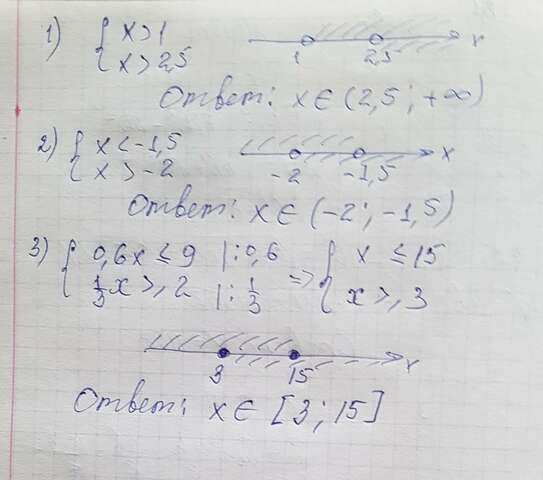 1) { x > 1
x > 2,5
1 2,5 x
Ответ: x ∈ (2,5 ; +∞)
2) { x < -1,5
x > -2
-2 -1,5 x
Ответ: x ∈ (-2 ; -1,5)
3) { 0,6x ≤ 9 |:0,6 => { x ≤ 15
1/3 x ≥ 2 |: 1/3 x ≥ 3
3 15 x
Ответ: x ∈ [3 ; 15]